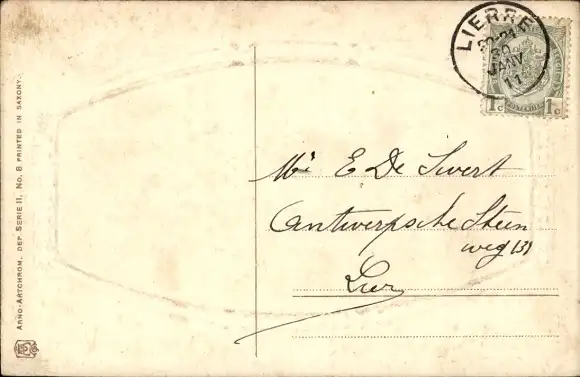 LIERRE
20-21
30
JANV
11
1c 1c
Mr E De Swert
Antwerpsche Steen
weg (3)
Lier
ARNO-ARTCHROM. DEP. SERIE II. No. 8 PRINTED IN SAXONY.